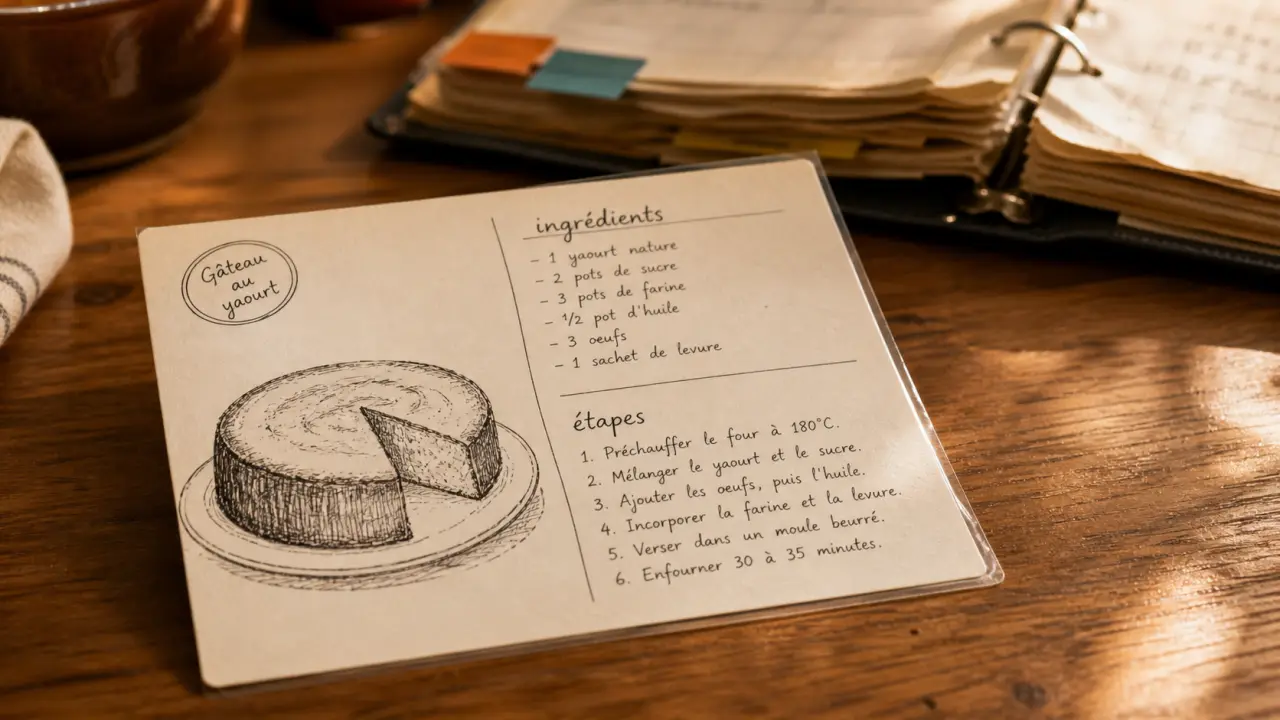 Gâteau
au
yaourt
ingrédients
- 1 yaourt nature
- 2 pots de sucre
- 3 pots de farine
- 1/2 pot d'huile
- 3 oeufs
- 1 sachet de levure
étapes
1. Préchauffer le four à 180°C.
2. Mélanger le yaourt et le sucre.
3. Ajouter les oeufs, puis l'huile.
4. Incorporer la farine et la levure.
5. Verser dans un moule beurré.
6. Enfourner 30 à 35 minutes.